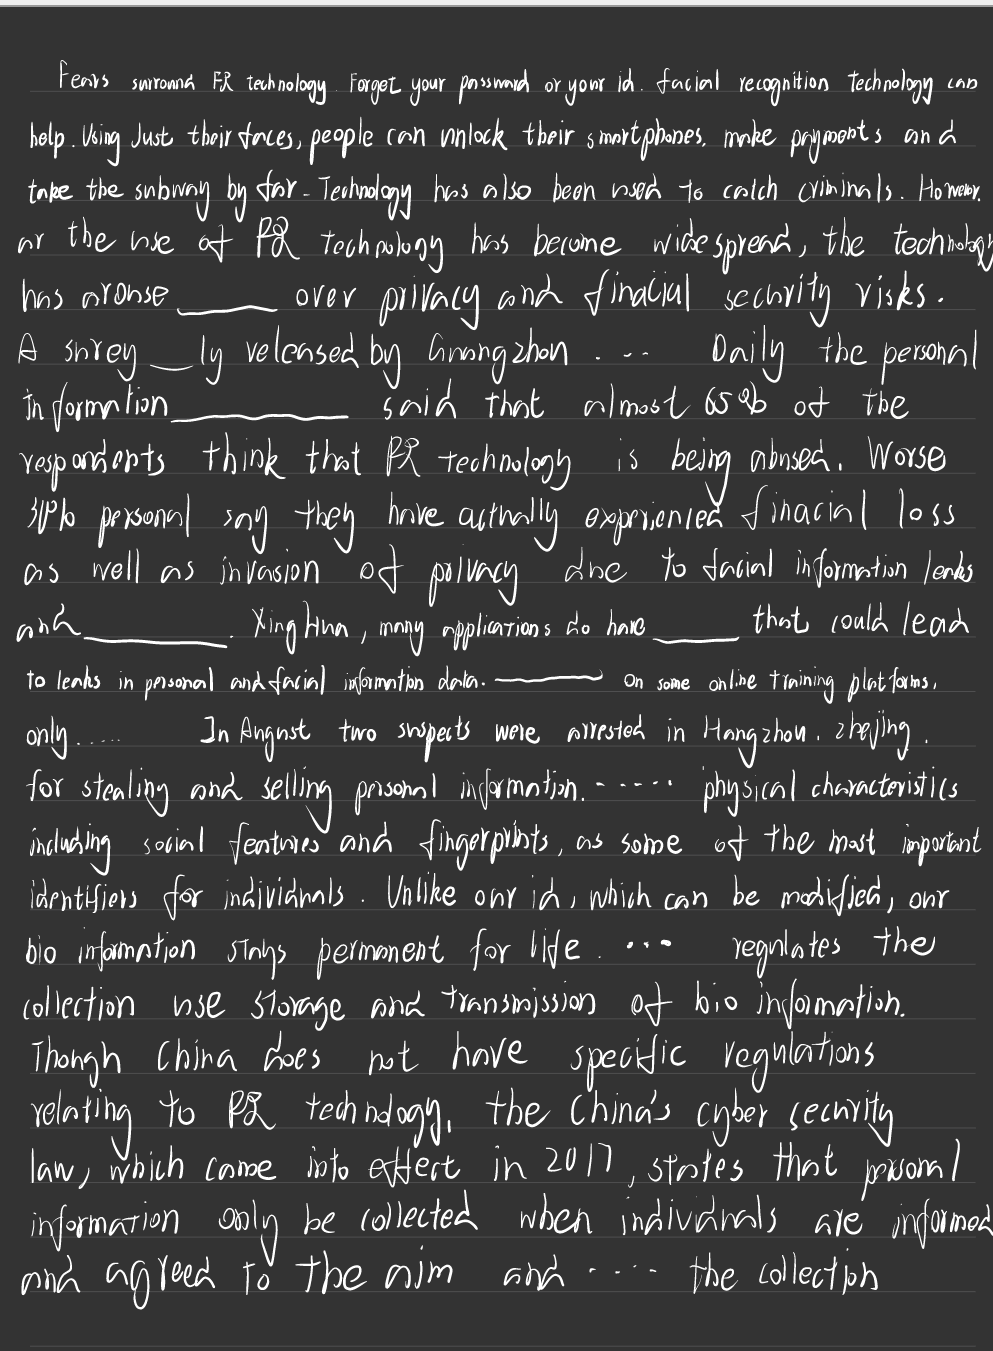 Fears surround FR technology. Forget your password or your id. facial recognition technology can
help. Using Just their faces, people can unlock their smartphones. make payments and
take the subway by far - Technology has also been used to catch criminals. However.
ar the use of FR technology has become widespread, the technology
has arouse ______ over privacy and finacial security risks.
A surey ___ ly released by Guangzhou .... Daily the personal
information ________ said that almost 65% of the
respondents think that FR technology is being abused. Worse
30% personal say they have actually experienced finacial loss
as well as invasion of privacy due to facial information leaks
and ________. XingHua, many applications do have _____ that could lead
to leaks in personal and facial information data. ______ on some online training platforms.
only..... In August two suspects were arrested in Hangzhou. zhejing.
for stealing and selling personal information. ..... physical characteristics
including social features and fingerprints, as some of the most important
identifiers for individuals. Unlike our id, which can be modified, our
bio information stays permanent for life. ... regulates the
collection use storage and transmission of bio information.
Though China does not have specific regulations
relating to FR technology, the China's cyber security
law, which came into effect in 2017, states that personal
information only be collected when individuals are informed
and agreed to the aim and .... the collection